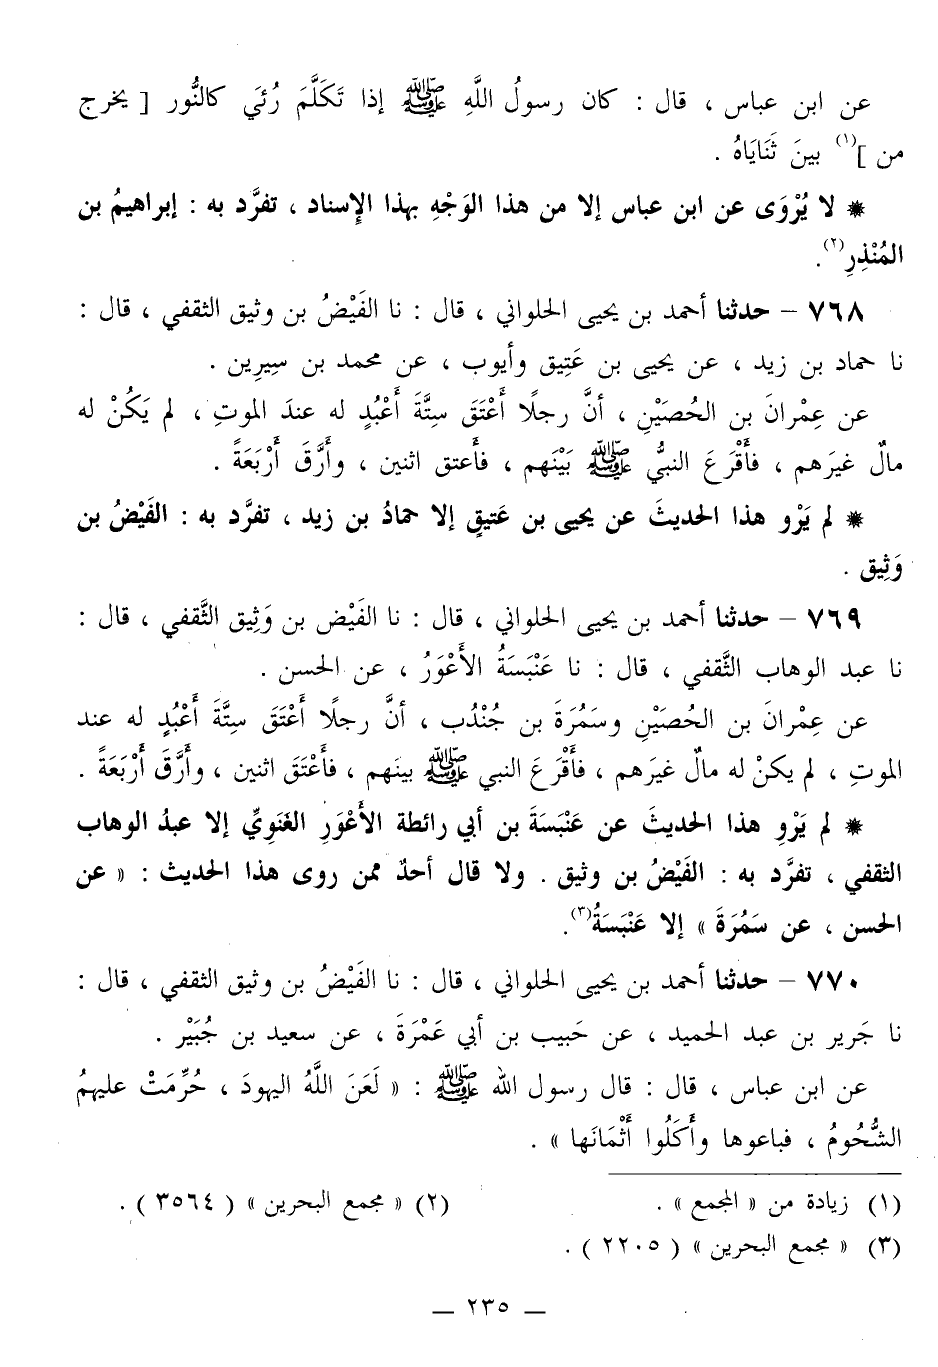 عن ابن عباس ، قال : كان رسولُ اللَّهِ ﷺ إذا تَكَلَّمَ رُئيَ كالنُّور [ يخرج
من ]⁽¹⁾ بينَ ثَنَايَاهُ .
* لا يُرْوَى عن ابن عباس إلا من هذا الوَجْهِ بهذا الإِسناد ، تفرَّد به : إبراهيمُ بن
المُنْذِرِ⁽²⁾.
٧٦٨ - حدثنا أحمد بن يحيى الحلواني ، قال : نا الفَيْضُ بن وثيق الثقفي ، قال :
نا حماد بن زيد ، عن يحيى بن عَتِيق وأيوب ، عن محمد بن سِيرِين .
عن عِمْرانَ بن الحُصَيْنِ ، أنَّ رجلًا أَعْتَقَ ستَّةَ أَعْبُدٍ له عندَ الموتِ ، لم يَكُنْ له
مالٌ غيرَهم ، فأَقْرَعَ النبيُّ ﷺ بَيْنَهم ، فأعتق اثنين ، وأَرَّقَ أَرْبَعَةً .
* لم يَرْوِ هذا الحديثَ عن يحيى بن عَتيقٍ إلا حمادُ بن زيد ، تفرَّد به : الفَيْضُ بن
وَثِيق .
٧٦٩ - حدثنا أحمد بن يحيى الحلواني ، قال : نا الفَيْض بن وَثِيق الثَّقفي ، قال :
نا عبد الوهاب الثَّقفي ، قال : نا عَنْبَسَةُ الأَعْوَرُ ، عن الحسن .
عن عِمْرانَ بن الحُصَيْنِ وسَمُرَةَ بن جُنْدُب ، أنَّ رجلًا أَعْتَقَ ستَّةَ أَعْبُدٍ له عند
الموتِ ، لم يكنْ له مالٌ غيرَهم ، فأَقْرَعَ النبي ﷺ بينَهم ، فأَعْتَقَ اثنين ، وأَرَّقَ أَرْبَعَةً .
* لم يَرْوِ هذا الحديثَ عن عَنْبَسَةَ بن أبي رائطة الأَعْوَرِ الغَنَوِيِّ إلا عبدُ الوهاب
الثقفي ، تفرَّد به : الفَيْضُ بن وثيق . ولا قال أحدٌ ممن روى هذا الحديث : « عن
الحسن ، عن سَمُرَةَ » إلا عَنْبَسَةُ⁽³⁾.
٧٧٠ - حدثنا أحمد بن يحيى الحلواني ، قال : نا الفَيْضُ بن وثيق الثقفي ، قال :
نا جَرير بن عبد الحميد ، عن حَبيب بن أبي عَمْرَةَ ، عن سعيد بن جُبَيْر .
عن ابن عباس ، قال : قال رسول الله ﷺ : « لَعَنَ اللَّهُ اليهودَ ، حُرِّمَتْ عليهمُ
الشُّحُومُ ، فباعوها وأَكَلُوا أَثْمَانَها » .
(١) زيادة من « المجمع » . (٢) « مجمع البحرين » ( ٣٥٦٤ ) .
(٣) « مجمع البحرين » ( ٢٢٠٥ ) .
— ٢٣٥ —